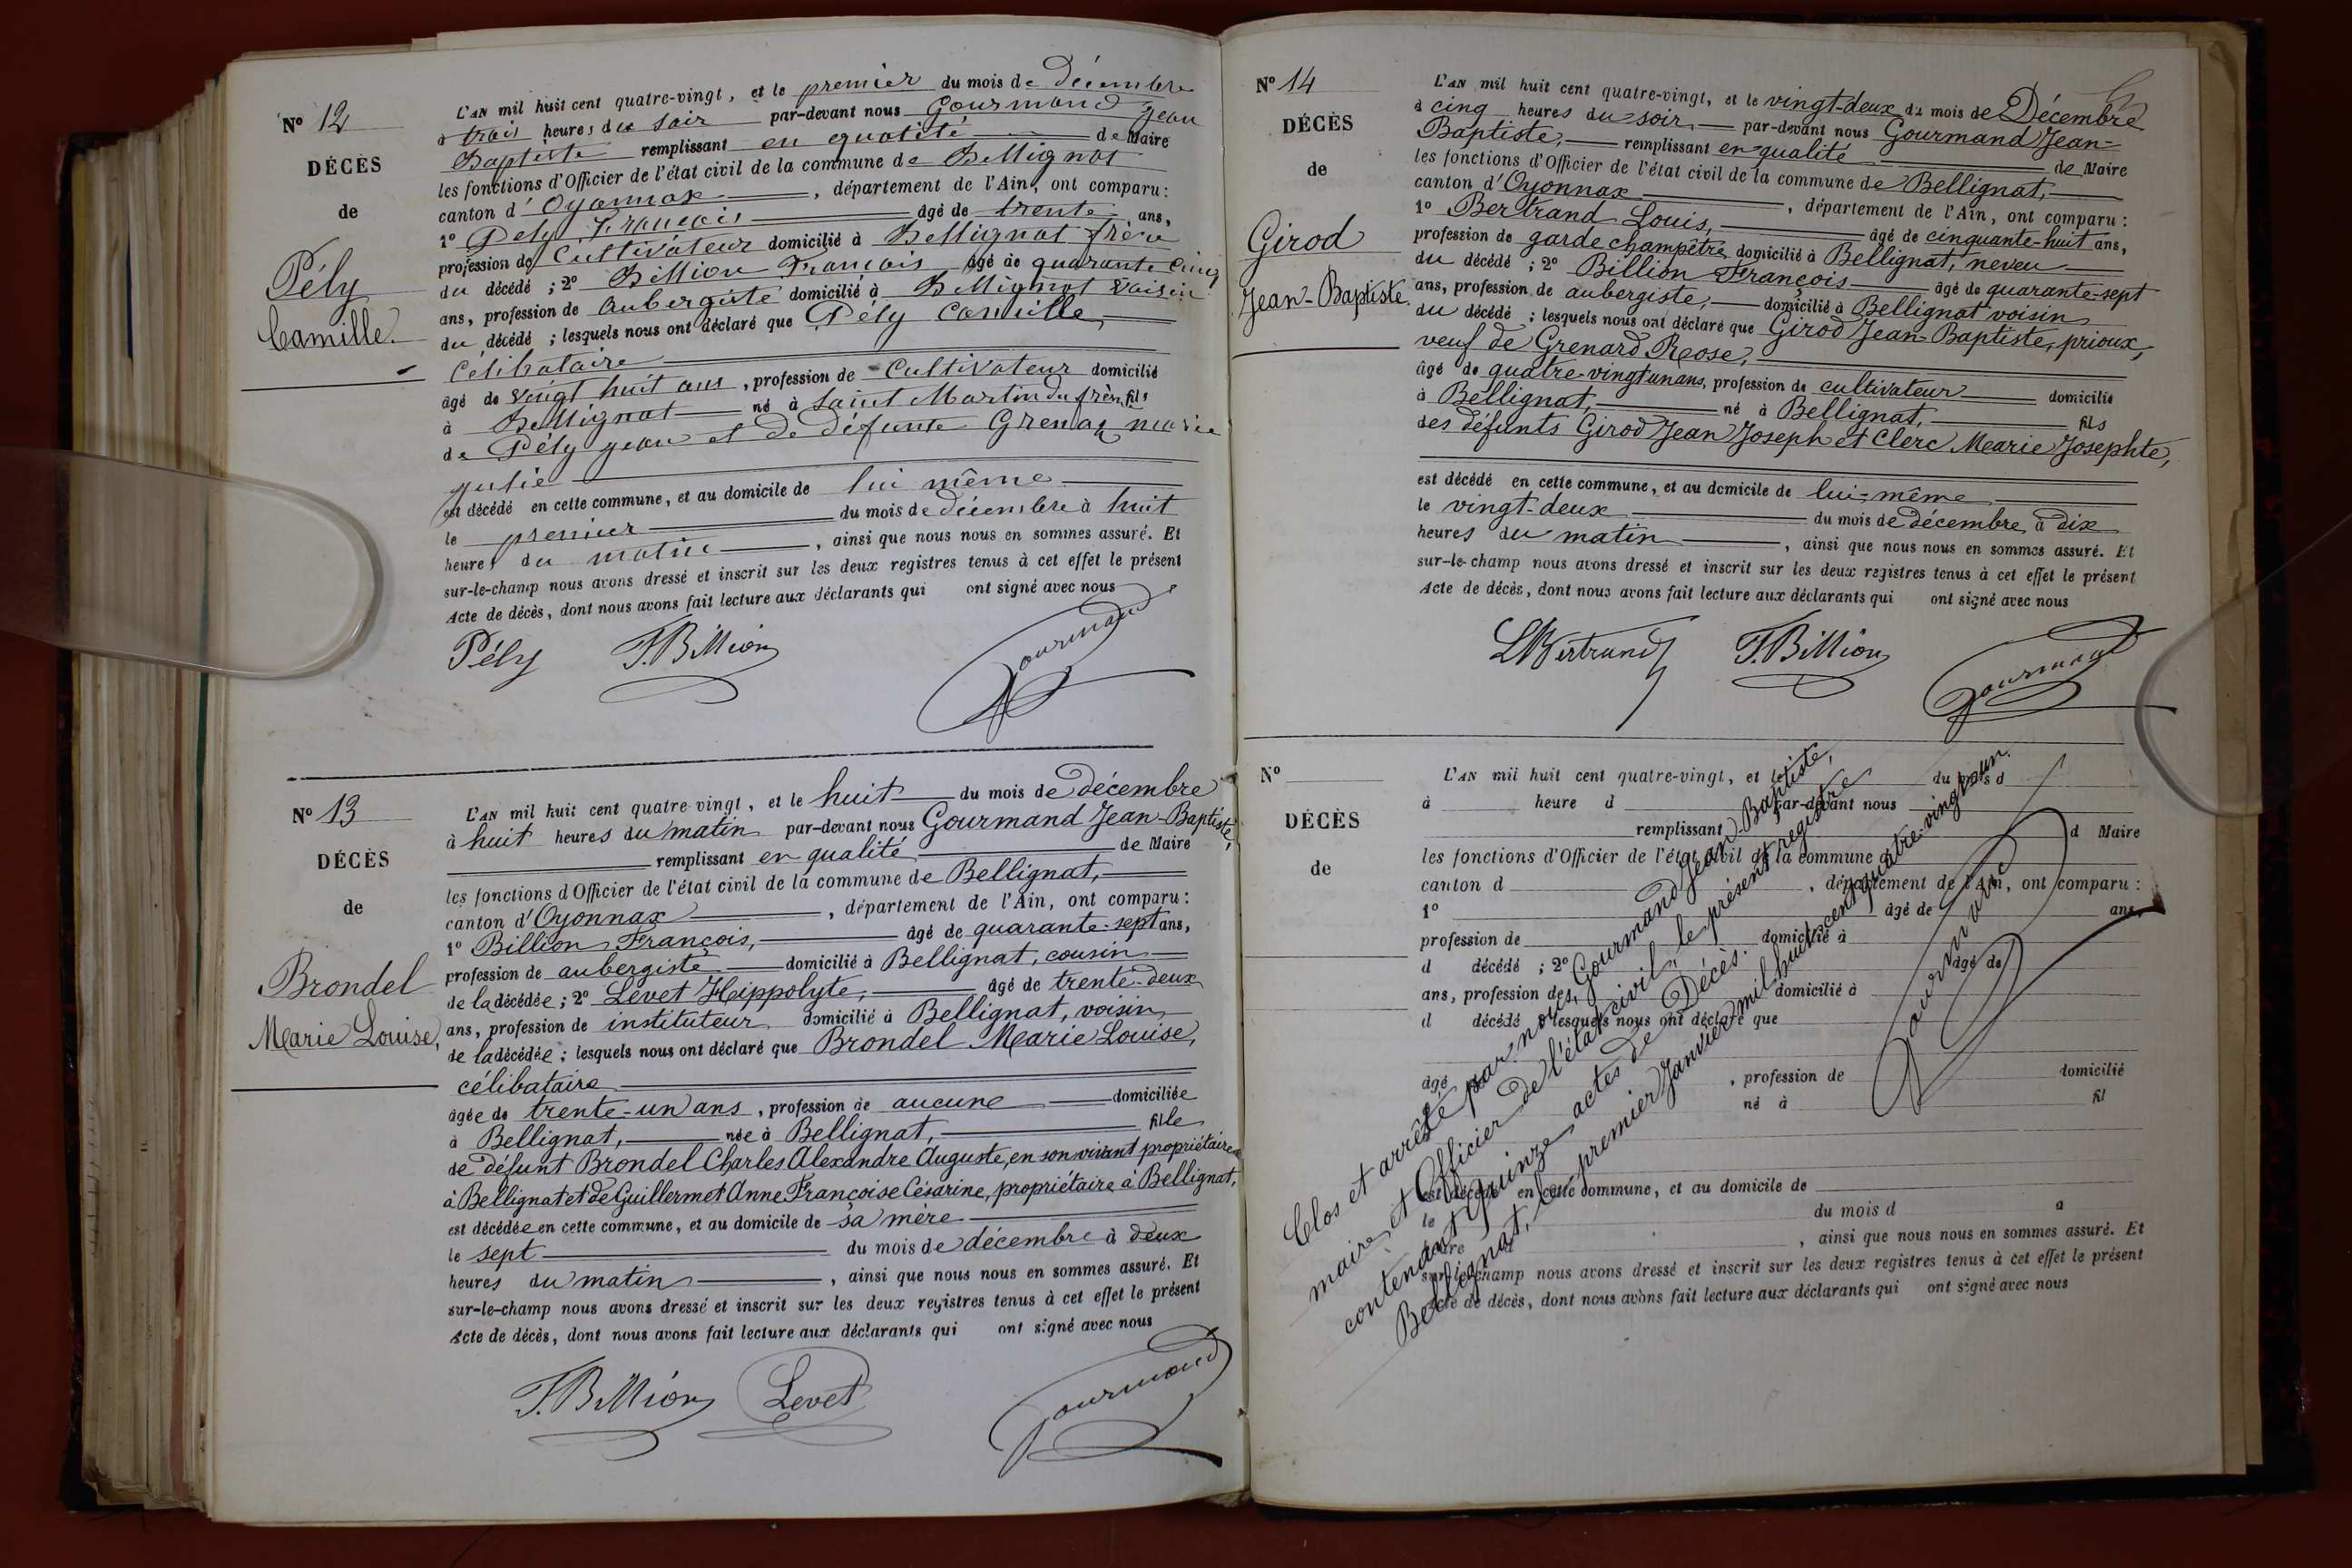 N° 12
DÉCÈS
de
Pély
Camille.
L'AN mil huit cent quatre-vingt, et le premier du mois de Décembre
à trois heures du soir par-devant nous Gourmand Jean
Baptiste remplissant en qualité de Maire
les fonctions d'Officier de l'état civil de la commune de Bellignat
canton d'Oyonnax, département de l'Ain, ont comparu:
1° Pély François âgé de trente ans,
profession de Cultivateur domicilié à Bellignat frère
du décédé; 2° Billion François âgé de quarante cinq
ans, profession de Aubergiste domicilié à Bellignat Voisin
du décédé; lesquels nous ont déclaré que Pély Camille,
Célibataire
âgé de vingt huit ans, profession de Cultivateur domicilié
à Bellignat né à Saint Martin du frêne fils
de Pély Jean et de défunte Grenar marie
Julie
est décédé en cette commune, et au domicile de lui même
le premier du mois de décembre à huit
heures du matin, ainsi que nous nous en sommes assuré. Et
sur-le-champ nous avons dressé et inscrit sur les deux registres tenus à cet effet le présent
Acte de décès, dont nous avons fait lecture aux déclarants qui ont signé avec nous
Pély F. Billion Gourmand
N° 13
DÉCÈS
de
Brondel
Marie Louise,
L'AN mil huit cent quatre-vingt, et le huit du mois de décembre
à huit heures du matin par-devant nous Gourmand Jean-Baptiste,
remplissant en qualité de Maire
les fonctions d'Officier de l'état civil de la commune de Bellignat,
canton d'Oyonnax, département de l'Ain, ont comparu:
1° Billion François, âgé de quarante-sept ans,
profession de aubergiste domicilié à Bellignat, cousin
de la décédée; 2° Levet Hippolyte, âgé de trente-deux
ans, profession de instituteur domicilié à Bellignat, voisin
de la décédée; lesquels nous ont déclaré que Brondel Marie Louise,
célibataire
âgée de trente-un ans, profession de aucune domiciliée
à Bellignat, née à Bellignat, fille
de défunt Brondel Charles Alexandre Auguste, en son vivant propriétaire
à Bellignat et de Guillermet Anne Françoise Césarine, propriétaire à Bellignat,
est décédée en cette commune, et au domicile de sa mère
le sept du mois de décembre à deux
heures du matin, ainsi que nous nous en sommes assuré. Et
sur-le-champ nous avons dressé et inscrit sur les deux registres tenus à cet effet le présent
Acte de décès, dont nous avons fait lecture aux déclarants qui ont signé avec nous
F. Billion Levet Gourmand
N° 14
DÉCÈS
de
Girod
Jean-Baptiste.
L'AN mil huit cent quatre-vingt, et le vingt-deux du mois de Décembre
à cinq heures du soir par-devant nous Gourmand Jean-
Baptiste, remplissant en qualité de Maire
les fonctions d'Officier de l'état civil de la commune de Bellignat,
canton d'Oyonnax, département de l'Ain, ont comparu:
1° Bertrand Louis, âgé de cinquante-huit ans,
profession de garde champêtre domicilié à Bellignat, neveu
du décédé; 2° Billion François âgé de quarante-sept
ans, profession de aubergiste, domicilié à Bellignat voisin
du décédé; lesquels nous ont déclaré que Girod Jean-Baptiste, prioux,
veuf de Grenard Rose,
âgé de quatre-vingt un ans, profession de cultivateur domicilié
à Bellignat, né à Bellignat, fils
des défunts Girod Jean Joseph et Clerc Marie Josephte,
est décédé en cette commune, et au domicile de lui-même
le vingt-deux du mois de décembre à dix
heures du matin, ainsi que nous nous en sommes assuré. Et
sur-le-champ nous avons dressé et inscrit sur les deux registres tenus à cet effet le présent
Acte de décès, dont nous avons fait lecture aux déclarants qui ont signé avec nous
L Bertrand F. Billion Gourmand
N°
DÉCÈS
de
L'AN mil huit cent quatre-vingt, et le du mois d
à heure d par-devant nous
remplissant d Maire
les fonctions d'Officier de l'état civil de la commune d
canton d, département de l'Ain, ont comparu:
1° âgé de ans,
profession de domicilié à
d décédé; 2° âgé de
ans, profession de domicilié à
d décédé lesquels nous ont déclaré que
âgé, profession de domicilié
né à fil
est décédé en cette commune, et au domicile de
le du mois d à
heure d, ainsi que nous nous en sommes assuré. Et
sur-le-champ nous avons dressé et inscrit sur les deux registres tenus à cet effet le présent
Acte de décès, dont nous avons fait lecture aux déclarants qui ont signé avec nous
Clos et arrêté par nous, Gourmand Jean-Baptiste,
maire et Officier de l'état civil, le présent registre
contenant quinze actes de Décès.
Bellignat, le premier Janvier mil huit cent quatre-vingt-un.
Gourmand